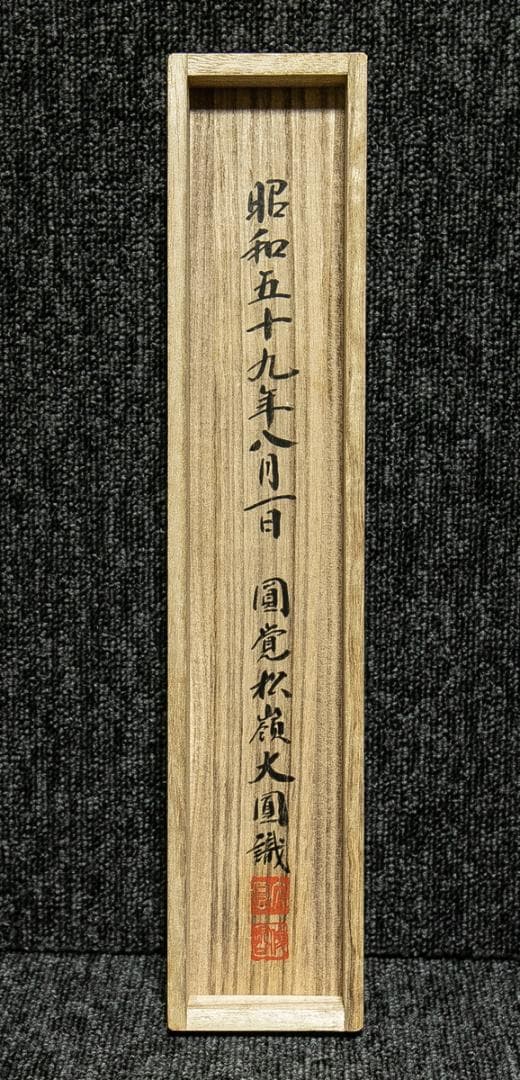 昭和五十九年八月一日　圓覚松嶺大圓識